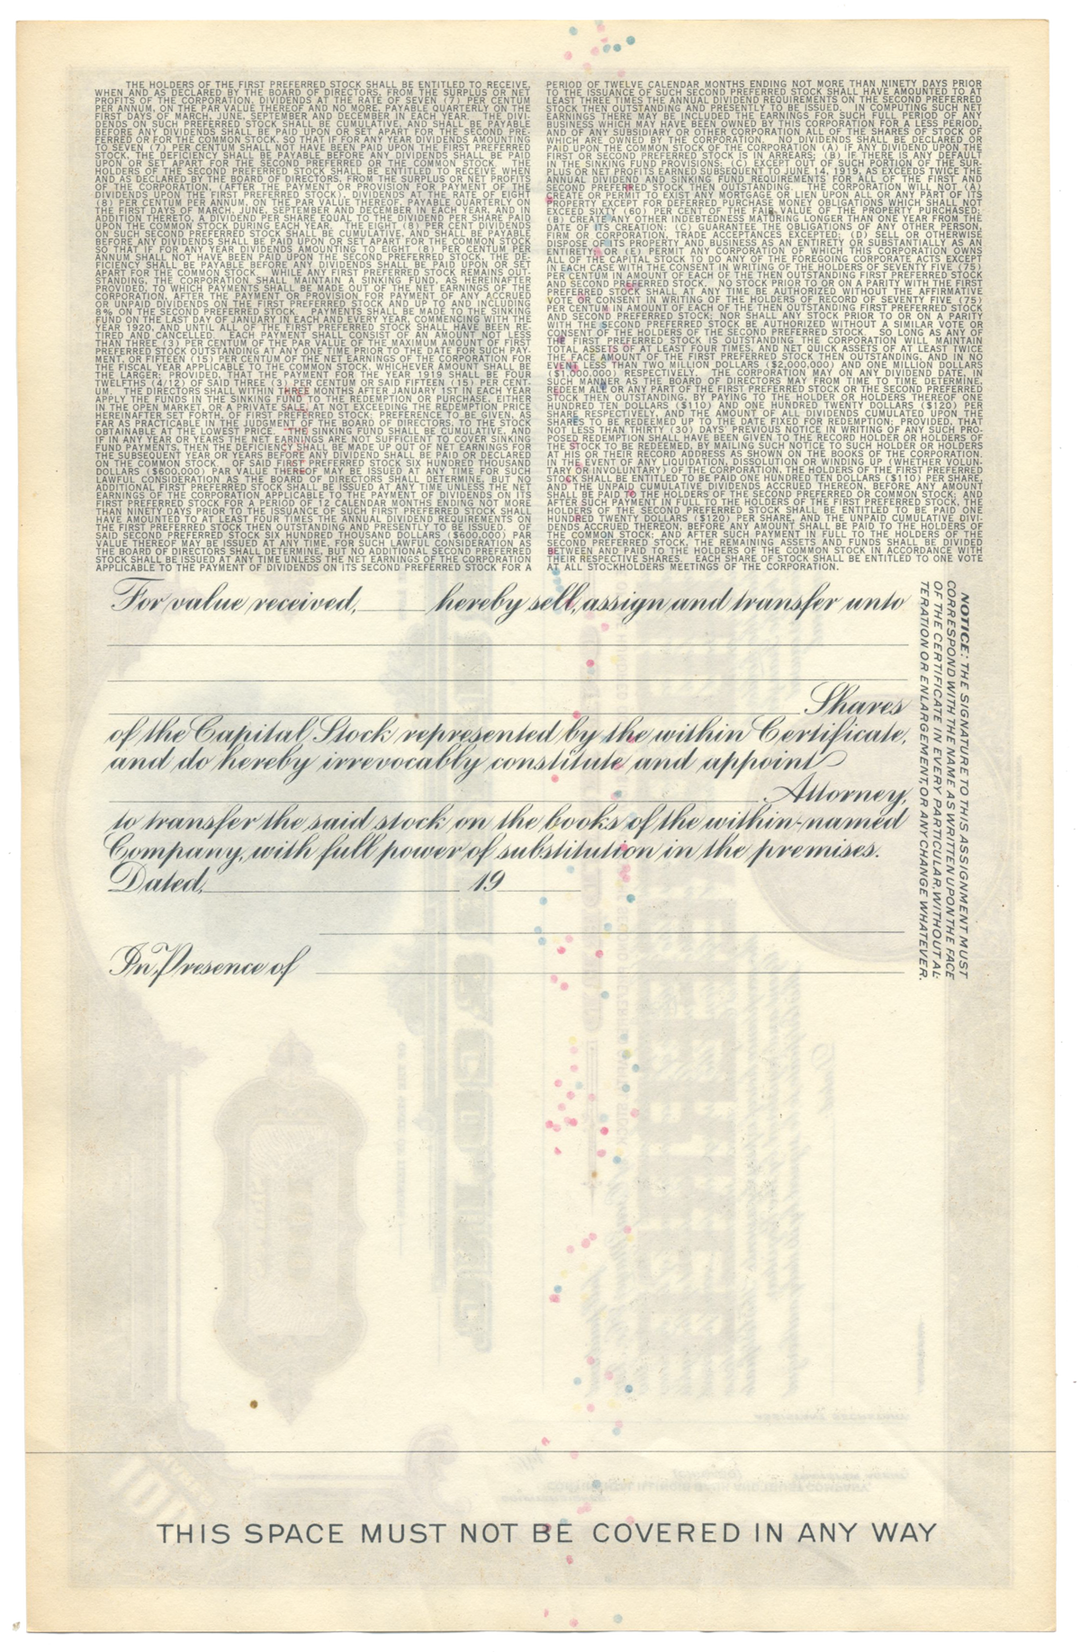 THE HOLDERS OF THE FIRST PREFERRED STOCK SHALL BE ENTITLED TO RECEIVE,
WHEN AND AS DECLARED BY THE BOARD OF DIRECTORS, FROM THE SURPLUS OR NET
PROFITS OF THE CORPORATION, DIVIDENDS AT THE RATE OF SEVEN (7) PER CENTUM
PER ANNUM, ON THE PAR VALUE THEREOF AND NO MORE, PAYABLE QUARTERLY ON THE
FIRST DAYS OF MARCH, JUNE, SEPTEMBER AND DECEMBER IN EACH YEAR. THE DIVI-
DENDS ON SUCH PREFERRED STOCK SHALL BE CUMULATIVE, AND SHALL BE PAYABLE
BEFORE ANY DIVIDENDS SHALL BE PAID UPON OR SET APART FOR THE SECOND PRE-
FERRED OR FOR THE COMMON STOCK, SO THAT IF FOR ANY YEAR DIVIDENDS AMOUNTING
TO SEVEN (7) PER CENTUM SHALL NOT HAVE BEEN PAID UPON THE FIRST PREFERRED
STOCK, THE DEFICIENCY SHALL BE PAYABLE BEFORE ANY DIVIDENDS SHALL BE PAID
UPON OR SET APART FOR THE SECOND PREFERRED OR THE COMMON STOCK. THE
HOLDERS OF THE SECOND PREFERRED STOCK SHALL BE ENTITLED TO RECEIVE WHEN
AND AS DECLARED BY THE BOARD OF DIRECTORS, FROM THE SURPLUS OR NET PROFITS
OF THE CORPORATION, (AFTER THE PAYMENT OR PROVISION FOR PAYMENT OF THE
DIVIDENDS UPON THE FIRST PREFERRED STOCK, DIVIDENDS AT THE RATE OF EIGHT
(8) PER CENTUM PER ANNUM, ON THE PAR VALUE THEREOF, PAYABLE QUARTERLY ON
THE FIRST DAYS OF MARCH, JUNE, SEPTEMBER AND DECEMBER IN EACH YEAR, AND IN
ADDITION THERETO, A DIVIDEND PER SHARE EQUAL TO THE DIVIDEND PER SHARE PAID
UPON THE COMMON STOCK DURING EACH YEAR. THE EIGHT (8) PER CENT DIVIDENDS
ON SUCH SECOND PREFERRED STOCK SHALL BE CUMULATIVE, AND SHALL BE PAYABLE
BEFORE ANY DIVIDENDS SHALL BE PAID UPON OR SET APART FOR THE COMMON STOCK
SO THAT IF FOR ANY YEAR DIVIDENDS AMOUNTING TO EIGHT (8) PER CENTUM PER
ANNUM SHALL NOT HAVE BEEN PAID UPON THE SECOND PREFERRED STOCK, THE DE-
FICIENCY SHALL BE PAYABLE BEFORE ANY DIVIDENDS SHALL BE PAID UPON OR SET
APART FOR THE COMMON STOCK. WHILE ANY FIRST PREFERRED STOCK REMAINS OUT-
STANDING, THE CORPORATION SHALL MAINTAIN A SINKING FUND, AS HEREINAFTER
PROVIDED, TO WHICH PAYMENTS SHALL BE MADE OUT OF THE NET EARNINGS OF THE
CORPORATION, AFTER THE PAYMENT OR PROVISION FOR PAYMENT OF ANY ACCRUED
OR UNPAID DIVIDENDS ON THE FIRST PREFERRED STOCK AND UP TO AND INCLUDING
8% ON THE SECOND PREFERRED STOCK. PAYMENTS SHALL BE MADE TO THE SINKING
FUND ON THE LAST DAY OF JANUARY IN EACH AND EVERY YEAR, COMMENCING WITH THE
YEAR 1920, AND UNTIL ALL OF THE FIRST PREFERRED STOCK SHALL HAVE BEEN RE-
TIRED AND CANCELLED. EACH PAYMENT SHALL CONSIST OF AN AMOUNT NOT LESS
THAN THREE (3) PER CENTUM OF THE PAR VALUE OF THE MAXIMUM AMOUNT OF FIRST
PREFERRED STOCK OUTSTANDING AT ANY ONE TIME PRIOR TO THE DATE OF SUCH PAY-
MENT, OR FIFTEEN (15) PER CENTUM OF THE NET EARNINGS OF THE CORPORATION FOR
THE FISCAL YEAR APPLICABLE TO THE COMMON STOCK, WHICHEVER AMOUNT SHALL BE
THE LARGER; PROVIDED, THAT THE PAYMENT FOR THE YEAR 1919 SHALL BE FOUR
TWELFTHS (4/12) OF SAID THREE (3) PER CENTUM OR SAID FIFTEEN (15) PER CENT-
UM. THE DIRECTORS SHALL WITHIN THREE MONTHS AFTER JANUARY 1ST IN EACH YEAR
APPLY THE FUNDS IN THE SINKING FUND TO THE REDEMPTION OR PURCHASE, EITHER
IN THE OPEN MARKET, OR A PRIVATE SALE, AT NOT EXCEEDING THE REDEMPTION PRICE
HEREINAFTER SET FORTH, OF FIRST PREFERRED STOCK. PREFERENCE TO BE GIVEN, AS
FAR AS PRACTICABLE IN THE JUDGMENT OF THE BOARD OF DIRECTORS, TO THE STOCK
OBTAINABLE AT THE LOWEST PRICE. THE SINKING FUND SHALL BE CUMULATIVE, AND
IF IN ANY YEAR OR YEARS THE NET EARNINGS ARE NOT SUFFICIENT TO COVER SINKING
FUND PAYMENTS, THEN THE DEFICIENCY SHALL BE MADE UP OUT OF NET EARNINGS OF
THE SUBSEQUENT YEAR OR YEARS BEFORE ANY DIVIDEND SHALL BE PAID OR DECLARED
ON THE COMMON STOCK. OF SAID FIRST PREFERRED STOCK SIX HUNDRED THOUSAND
DOLLARS ($600,000) PAR VALUE THEREOF MAY BE ISSUED AT ANY TIME FOR SUCH
LAWFUL CONSIDERATION AS THE BOARD OF DIRECTORS SHALL DETERMINE, BUT NO
ADDITIONAL FIRST PREFERRED STOCK SHALL BE ISSUED AT ANY TIME UNLESS THE NET
EARNINGS OF THE CORPORATION APPLICABLE TO THE PAYMENT OF DIVIDENDS ON ITS
FIRST PREFERRED STOCK FOR A PERIOD OF 12 CALENDAR MONTHS ENDING NOT MORE
THAN NINETY DAYS PRIOR TO THE ISSUANCE OF SUCH FIRST PREFERRED STOCK SHALL
HAVE AMOUNTED TO AT LEAST FOUR TIMES THE ANNUAL DIVIDEND REQUIREMENTS ON
THE FIRST PREFERRED STOCK THEN OUTSTANDING AND PRESENTLY TO BE ISSUED. OF
SAID SECOND PREFERRED STOCK SIX HUNDRED THOUSAND DOLLARS ($600,000) PAR
VALUE THEREOF MAY BE ISSUED AT ANY TIME, FOR SUCH LAWFUL CONSIDERATION AS
THE BOARD OF DIRECTORS SHALL DETERMINE, BUT NO ADDITIONAL SECOND PREFERRED
STOCK SHALL BE ISSUED AT ANY TIME UNLESS THE NET EARNINGS OF THE CORPORATION
APPLICABLE TO THE PAYMENT OF DIVIDENDS ON ITS SECOND PREFERRED STOCK FOR A
PERIOD OF TWELVE CALENDAR MONTHS ENDING NOT MORE THAN NINETY DAYS PRIOR
TO THE ISSUANCE OF SUCH SECOND PREFERRED STOCK SHALL HAVE AMOUNTED TO AT
LEAST THREE TIMES THE ANNUAL DIVIDEND REQUIREMENTS ON THE SECOND PREFERRED
STOCK THEN OUTSTANDING AND PRESENTLY TO BE ISSUED. IN COMPUTING SUCH NET
EARNINGS THERE MAY BE INCLUDED THE EARNINGS FOR SUCH FULL PERIOD OF ANY
BUSINESS WHICH MAY HAVE BEEN OWNED BY THIS CORPORATION FOR A LESS PERIOD,
AND OF ANY SUBSIDIARY OR OTHER CORPORATION ALL OF THE SHARES OF STOCK OF
WHICH ARE OWNED BY THE CORPORATION. NO DIVIDENDS SHALL BE DECLARED OR
PAID UPON THE COMMON STOCK OF THE CORPORATION (A) IF ANY DIVIDEND UPON THE
FIRST OR SECOND PREFERRED STOCK IS IN ARREARS; (B) IF THERE IS ANY DEFAULT
IN THE SINKING FUND PROVISIONS; (C) EXCEPT OUT OF SUCH PORTION OF THE SUR-
PLUS OR NET PROFITS EARNED SUBSEQUENT TO JUNE 14, 1919, AS EXCEEDS TWICE THE
ANNUAL DIVIDEND AND SINKING FUND REQUIREMENTS FOR ALL OF THE FIRST AND
SECOND PREFERRED STOCK THEN OUTSTANDING. THE CORPORATION WILL NOT (A)
CREATE OR PERMIT TO EXIST ANY MORTGAGE OR LIEN UPON ALL OR ANY PART OF ITS
PROPERTY EXCEPT FOR DEFERRED PURCHASE MONEY OBLIGATIONS WHICH SHALL NOT
EXCEED SIXTY (60) PER CENT OF THE FAIR VALUE OF THE PROPERTY PURCHASED;
(B) CREATE ANY OTHER INDEBTEDNESS MATURING LONGER THAN ONE YEAR FROM THE
DATE OF ITS CREATION; (C) GUARANTEE THE OBLIGATIONS OF ANY OTHER PERSON,
FIRM OR CORPORATION, TRADE ACCEPTANCES EXCEPTED; (D) SELL OR OTHERWISE
DISPOSE OF ITS PROPERTY AND BUSINESS AS AN ENTIRETY OR SUBSTANTIALLY AS AN
ENTIRETY; OR (E) PERMIT ANY CORPORATION OF WHICH THIS CORPORATION OWNS
ALL OF THE CAPITAL STOCK TO DO ANY OF THE FOREGOING CORPORATE ACTS EXCEPT
IN EACH CASE WITH THE CONSENT IN WRITING OF THE HOLDERS OF SEVENTY FIVE (75)
PER CENTUM IN AMOUNT OF EACH OF THE THEN OUTSTANDING FIRST PREFERRED STOCK
AND SECOND PREFERRED STOCK. NO STOCK PRIOR TO OR ON A PARITY WITH THE FIRST
PREFERRED STOCK SHALL AT ANY TIME BE AUTHORIZED WITHOUT THE AFFIRMATIVE
VOTE OR CONSENT IN WRITING OF THE HOLDERS OF RECORD OF SEVENTY FIVE (75)
PER CENTUM IN AMOUNT OF EACH OF THE THEN OUTSTANDING FIRST PREFERRED STOCK
AND SECOND PREFERRED STOCK; NOR SHALL ANY STOCK PRIOR TO OR ON A PARITY
WITH THE SECOND PREFERRED STOCK BE AUTHORIZED WITHOUT A SIMILAR VOTE OR
CONSENT OF THE HOLDERS OF THE SECOND PREFERRED STOCK. SO LONG AS ANY OF
THE FIRST PREFERRED STOCK IS OUTSTANDING THE CORPORATION WILL MAINTAIN
TOTAL ASSETS OF AT LEAST FOUR TIMES, AND NET QUICK ASSETS OF AT LEAST TWICE
THE FACE AMOUNT OF THE FIRST PREFERRED STOCK THEN OUTSTANDING, AND IN NO
EVENT LESS THAN TWO MILLION DOLLARS ($2,000,000) AND ONE MILLION DOLLARS
($1,000,000) RESPECTIVELY. THE CORPORATION MAY ON ANY DIVIDEND DATE, IN
SUCH MANNER AS THE BOARD OF DIRECTORS MAY FROM TIME TO TIME DETERMINE,
REDEEM ALL OR ANY PART OF THE FIRST PREFERRED STOCK OR THE SECOND PREFERRED
STOCK THEN OUTSTANDING, BY PAYING TO THE HOLDER OR HOLDERS THEREOF ONE
HUNDRED TEN DOLLARS ($110) AND ONE HUNDRED TWENTY DOLLARS ($120) PER
SHARE RESPECTIVELY, AND THE AMOUNT OF ALL DIVIDENDS CUMULATED UPON THE
SHARES TO BE REDEEMED UP TO THE DATE FIXED FOR REDEMPTION; PROVIDED, THAT
NOT LESS THAN THIRTY (30) DAYS' PREVIOUS NOTICE IN WRITING OF ANY SUCH PRO-
POSED REDEMPTION SHALL HAVE BEEN GIVEN TO THE RECORD HOLDER OR HOLDERS OF
THE STOCK TO BE REDEEMED, BY MAILING SUCH NOTICE TO SUCH HOLDER OR HOLDERS
AT HIS OR THEIR RECORD ADDRESS AS SHOWN ON THE BOOKS OF THE CORPORATION.
IN THE EVENT OF ANY LIQUIDATION, DISSOLUTION OR WINDING UP (WHETHER VOLUN-
TARY OR INVOLUNTARY) OF THE CORPORATION, THE HOLDERS OF THE FIRST PREFERRED
STOCK SHALL BE ENTITLED TO BE PAID ONE HUNDRED TEN DOLLARS ($110) PER SHARE,
AND THE UNPAID CUMULATIVE DIVIDENDS ACCRUED THEREON, BEFORE ANY AMOUNT
SHALL BE PAID TO THE HOLDERS OF THE SECOND PREFERRED OR COMMON STOCK; AND
AFTER SUCH PAYMENT IN FULL TO THE HOLDERS OF THE FIRST PREFERRED STOCK, THE
HOLDERS OF THE SECOND PREFERRED STOCK SHALL BE ENTITLED TO BE PAID ONE
HUNDRED TWENTY DOLLARS ($120) PER SHARE, AND THE UNPAID CUMULATIVE DIVI-
DENDS ACCRUED THEREON, BEFORE ANY AMOUNT SHALL BE PAID TO THE HOLDERS OF
THE COMMON STOCK; AND AFTER SUCH PAYMENT IN FULL TO THE HOLDERS OF THE
SECOND PREFERRED STOCK, THE REMAINING ASSETS AND FUNDS SHALL BE DIVIDED
BETWEEN AND PAID TO THE HOLDERS OF THE COMMON STOCK IN ACCORDANCE WITH
THEIR RESPECTIVE SHARES. EACH SHARE OF STOCK SHALL BE ENTITLED TO ONE VOTE
AT ALL STOCKHOLDERS MEETINGS OF THE CORPORATION.
For value received, hereby sell, assign and transfer unto
Shares
of the Capital Stock represented by the within Certificate,
and do hereby irrevocably constitute and appoint
Attorney,
to transfer the said stock on the books of the within-named
Company, with full power of substitution in the premises.
Dated, 19
In Presence of
NOTICE: THE SIGNATURE TO THIS ASSIGNMENT MUST
CORRESPOND WITH THE NAME AS WRITTEN UPON THE FACE
OF THE CERTIFICATE IN EVERY PARTICULAR, WITHOUT AL-
TERATION OR ENLARGEMENT, OR ANY CHANGE WHATEVER.
THIS SPACE MUST NOT BE COVERED IN ANY WAY